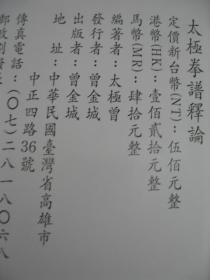 太極拳譜釋論
定價新台幣(NT):伍佰元整
港幣(HK):壹佰貳拾元整
馬幣(MR):肆拾元整
編著者:太極曾
發行者:曾金城
出版者:曾金城
地址:中華民國臺灣省高雄市
中正四路36號
傳真電話:(〇七)二八一八〇六八